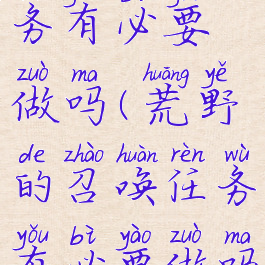 务有必要
zuò ma huāng yě
做吗(荒野
de zhào huàn rèn wù
的召唤任务
yǒu bì yào zuò ma
有必要做吗